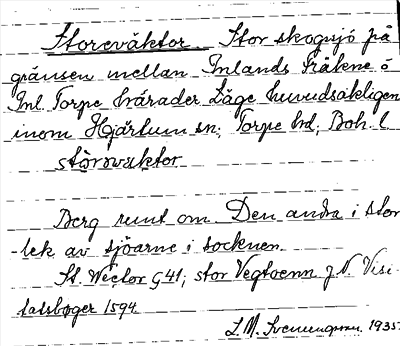 Storeväktor Stor skogssjö på
gränsen mellan Inlands Fräkne o
Inl Torpe härader Läge huvudsakligen
inom Hjärtum sn; Torpe hd; Boh. l
störovaktor
Berg runt om Den andra i stor
-lek av sjöarne i socknen.
St. Wector G41; stor Vegtoenn J N Visi
tatsboger 1594
1935